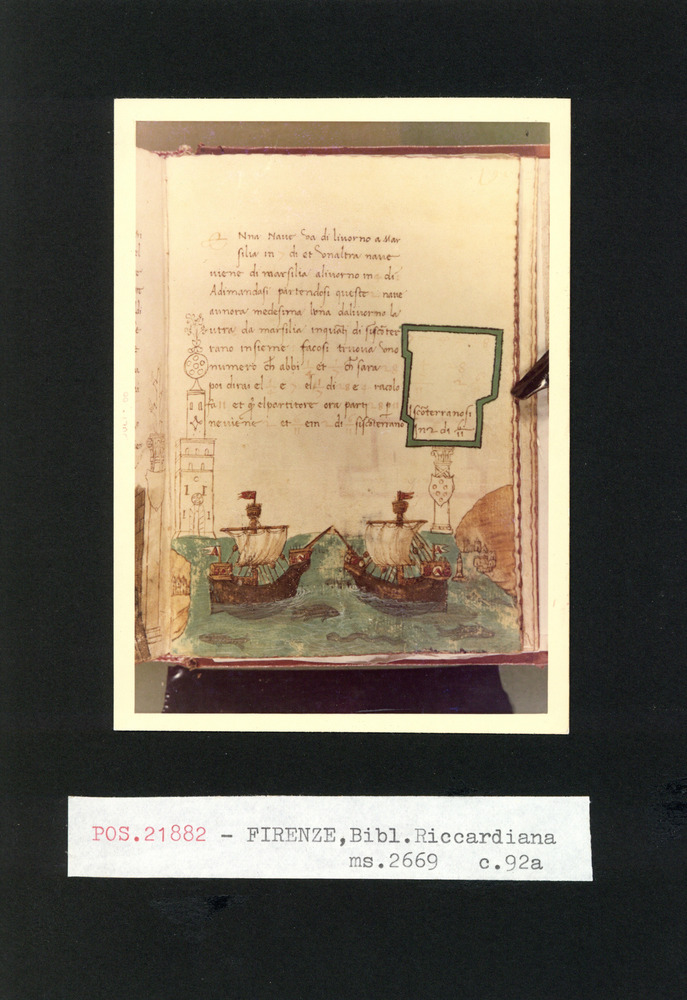 Nna Naue va di liuorno a Mar
silia in di et vnaltra naue
uiene di marsilia aliuorno in di
Adimandasi partendosi queste naue
aunora medesima luna daliuorno la
lutra da marsilia inquati di siscoter
rano insieme facosi truoua vno
numero ch abbi et ch sara
poi dirai el e el di e racolo
fa 11 et q elpartitore ora parti
neuiene et em di siscoterrano
iscoterranosi
in 2 di
POS.21882 - FIRENZE,Bibl.Riccardiana
ms.2669 c.92a